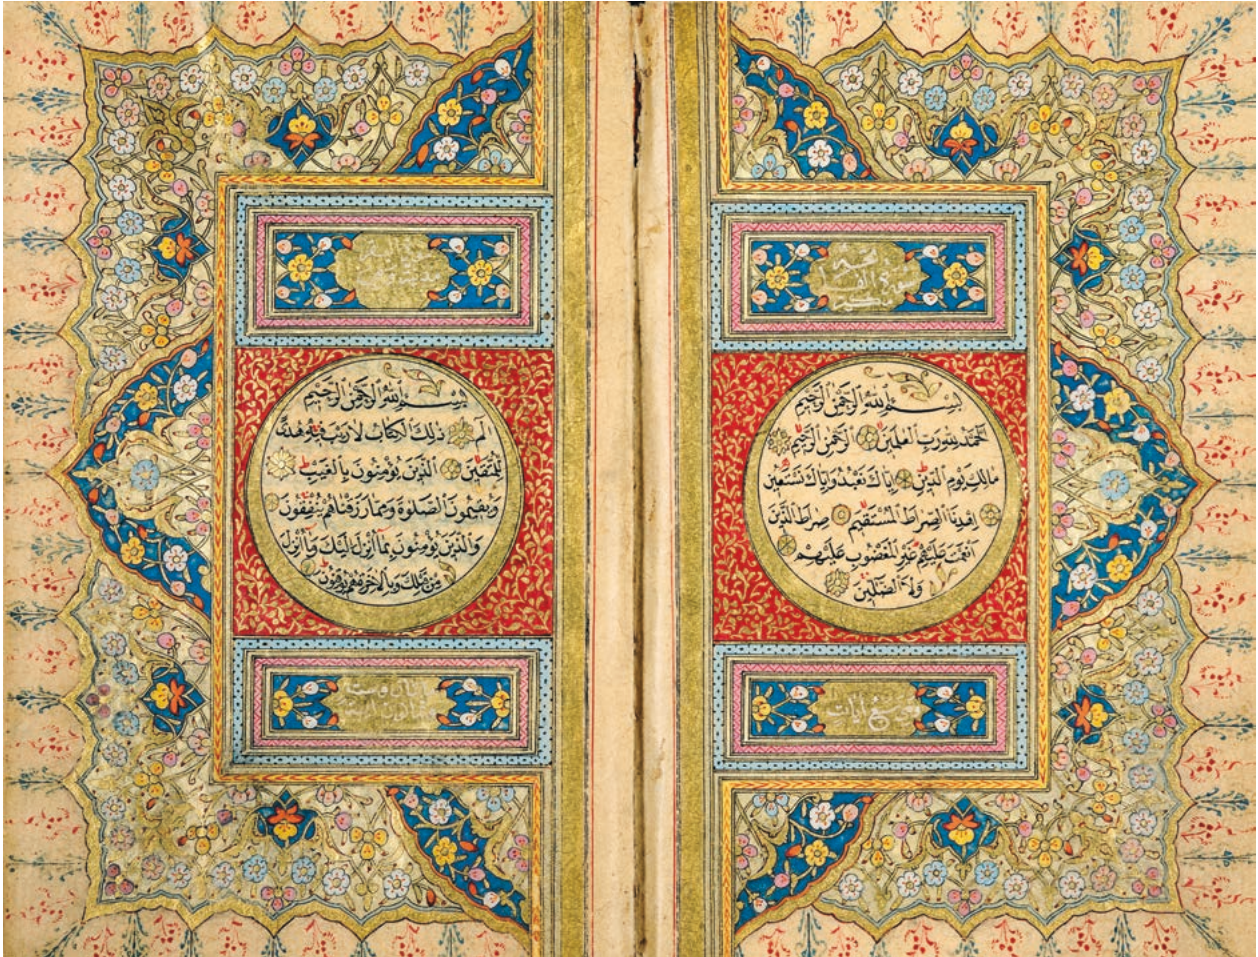 سورة الفاتحة
مكية
بسم الله الرحمن الرحيم
الحمد لله رب العلمين الرحمن الرحيم
مالك يوم الدين إياك نعبد وإياك نستعين
اهدنا الصراط المستقيم صراط الذين
أنعمت عليهم غير المغضوب عليهم
ولا الضالين
سبع آيات
بسم الله الرحمن الرحيم
الم ذلك الكتاب لا ريب فيه هدى
للمتقين الذين يؤمنون بالغيب
ويقيمون الصلوة ومما رزقناهم ينفقون
والذين يؤمنون بما أنزل إليك وما أنزل
من قبلك وبالآخرة هم يوقنون